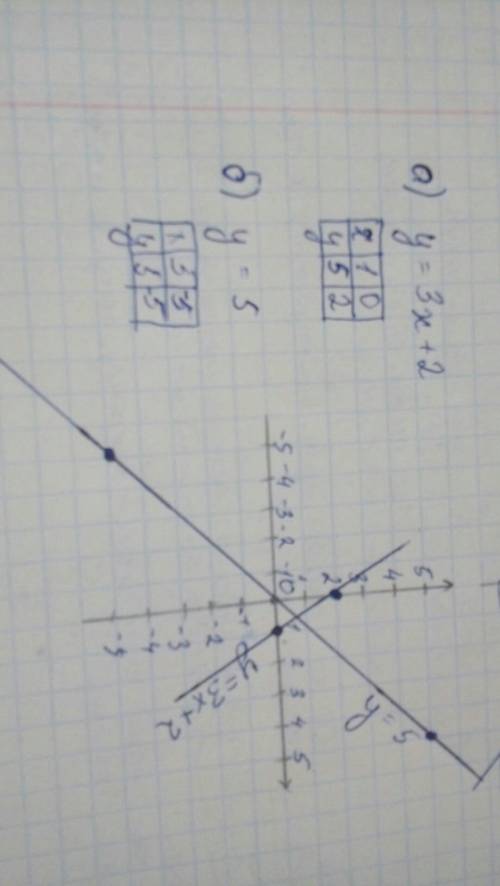 а) y = 3x + 2
x 1 0
y 5 2
б) y = 5
x 5 -5
y 5 -5
5
4
3
2
-5 -4 -3 -2 -1 0 1 2 3 4 5
-1
-2
-3
-4
-5
y = 5
y = 3x + 2